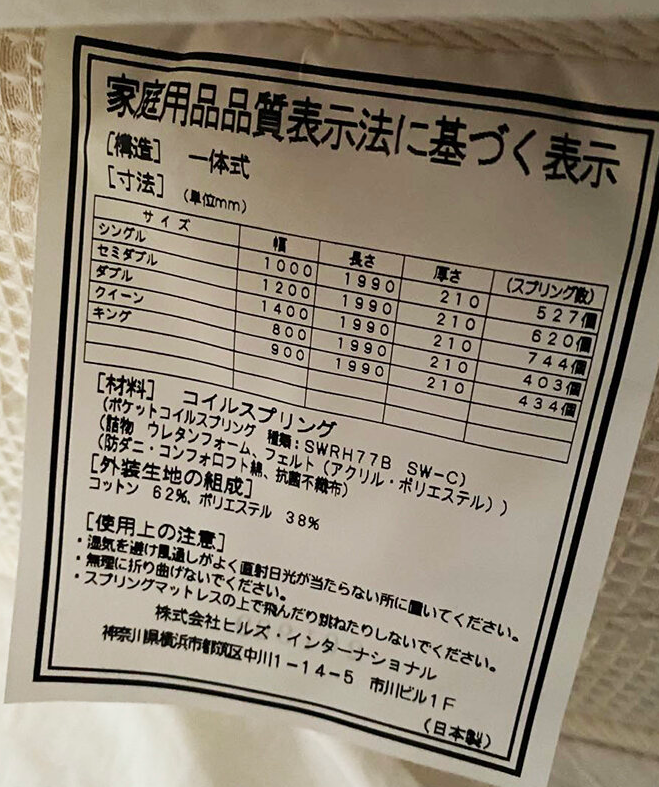 家庭用品品質表示法に基づく表示
[構造] 一体式
[寸法] (単位mm)
サイズ 幅 長さ 厚さ (スプリング数)
シングル 1000 1990 210 527個
セミダブル 1200 1990 210 620個
ダブル 1400 1990 210 744個
クイーン 800 1990 210 403個
キング 900 1990 210 434個
[材料] コイルスプリング
(ポケットコイルスプリング 種類:SWRH77B SW-C)
(詰物 ウレタンフォーム、フェルト(アクリル・ポリエステル))
(防ダニ・コンフォロフト綿、抗菌不織布)
[外装生地の組成]
コットン 62%、ポリエステル 38%
[使用上の注意]
・湿気を避け風通しがよく直射日光が当たらない所に置いてください。
・無理に折り曲げないでください。
・スプリングマットレスの上で飛んだり跳ねたりしないでください。
株式会社ヒルズ・インターナショナル
神奈川県横浜市都筑区中川1-14-5 市川ビル1F
(日本製)